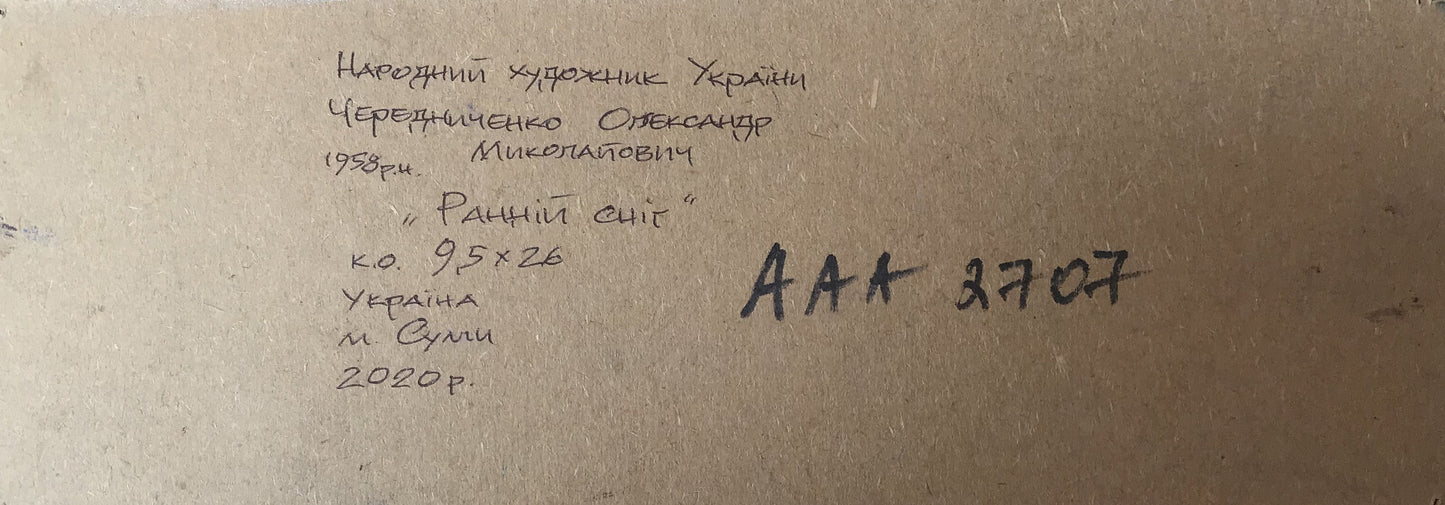 Народний художник України
Чередниченко Олександр
Миколайович
1958 р.н.
„Ранній сніг“
к.о. 9,5 х 26
Україна
м. Суми
2020 р.
AAA 2707